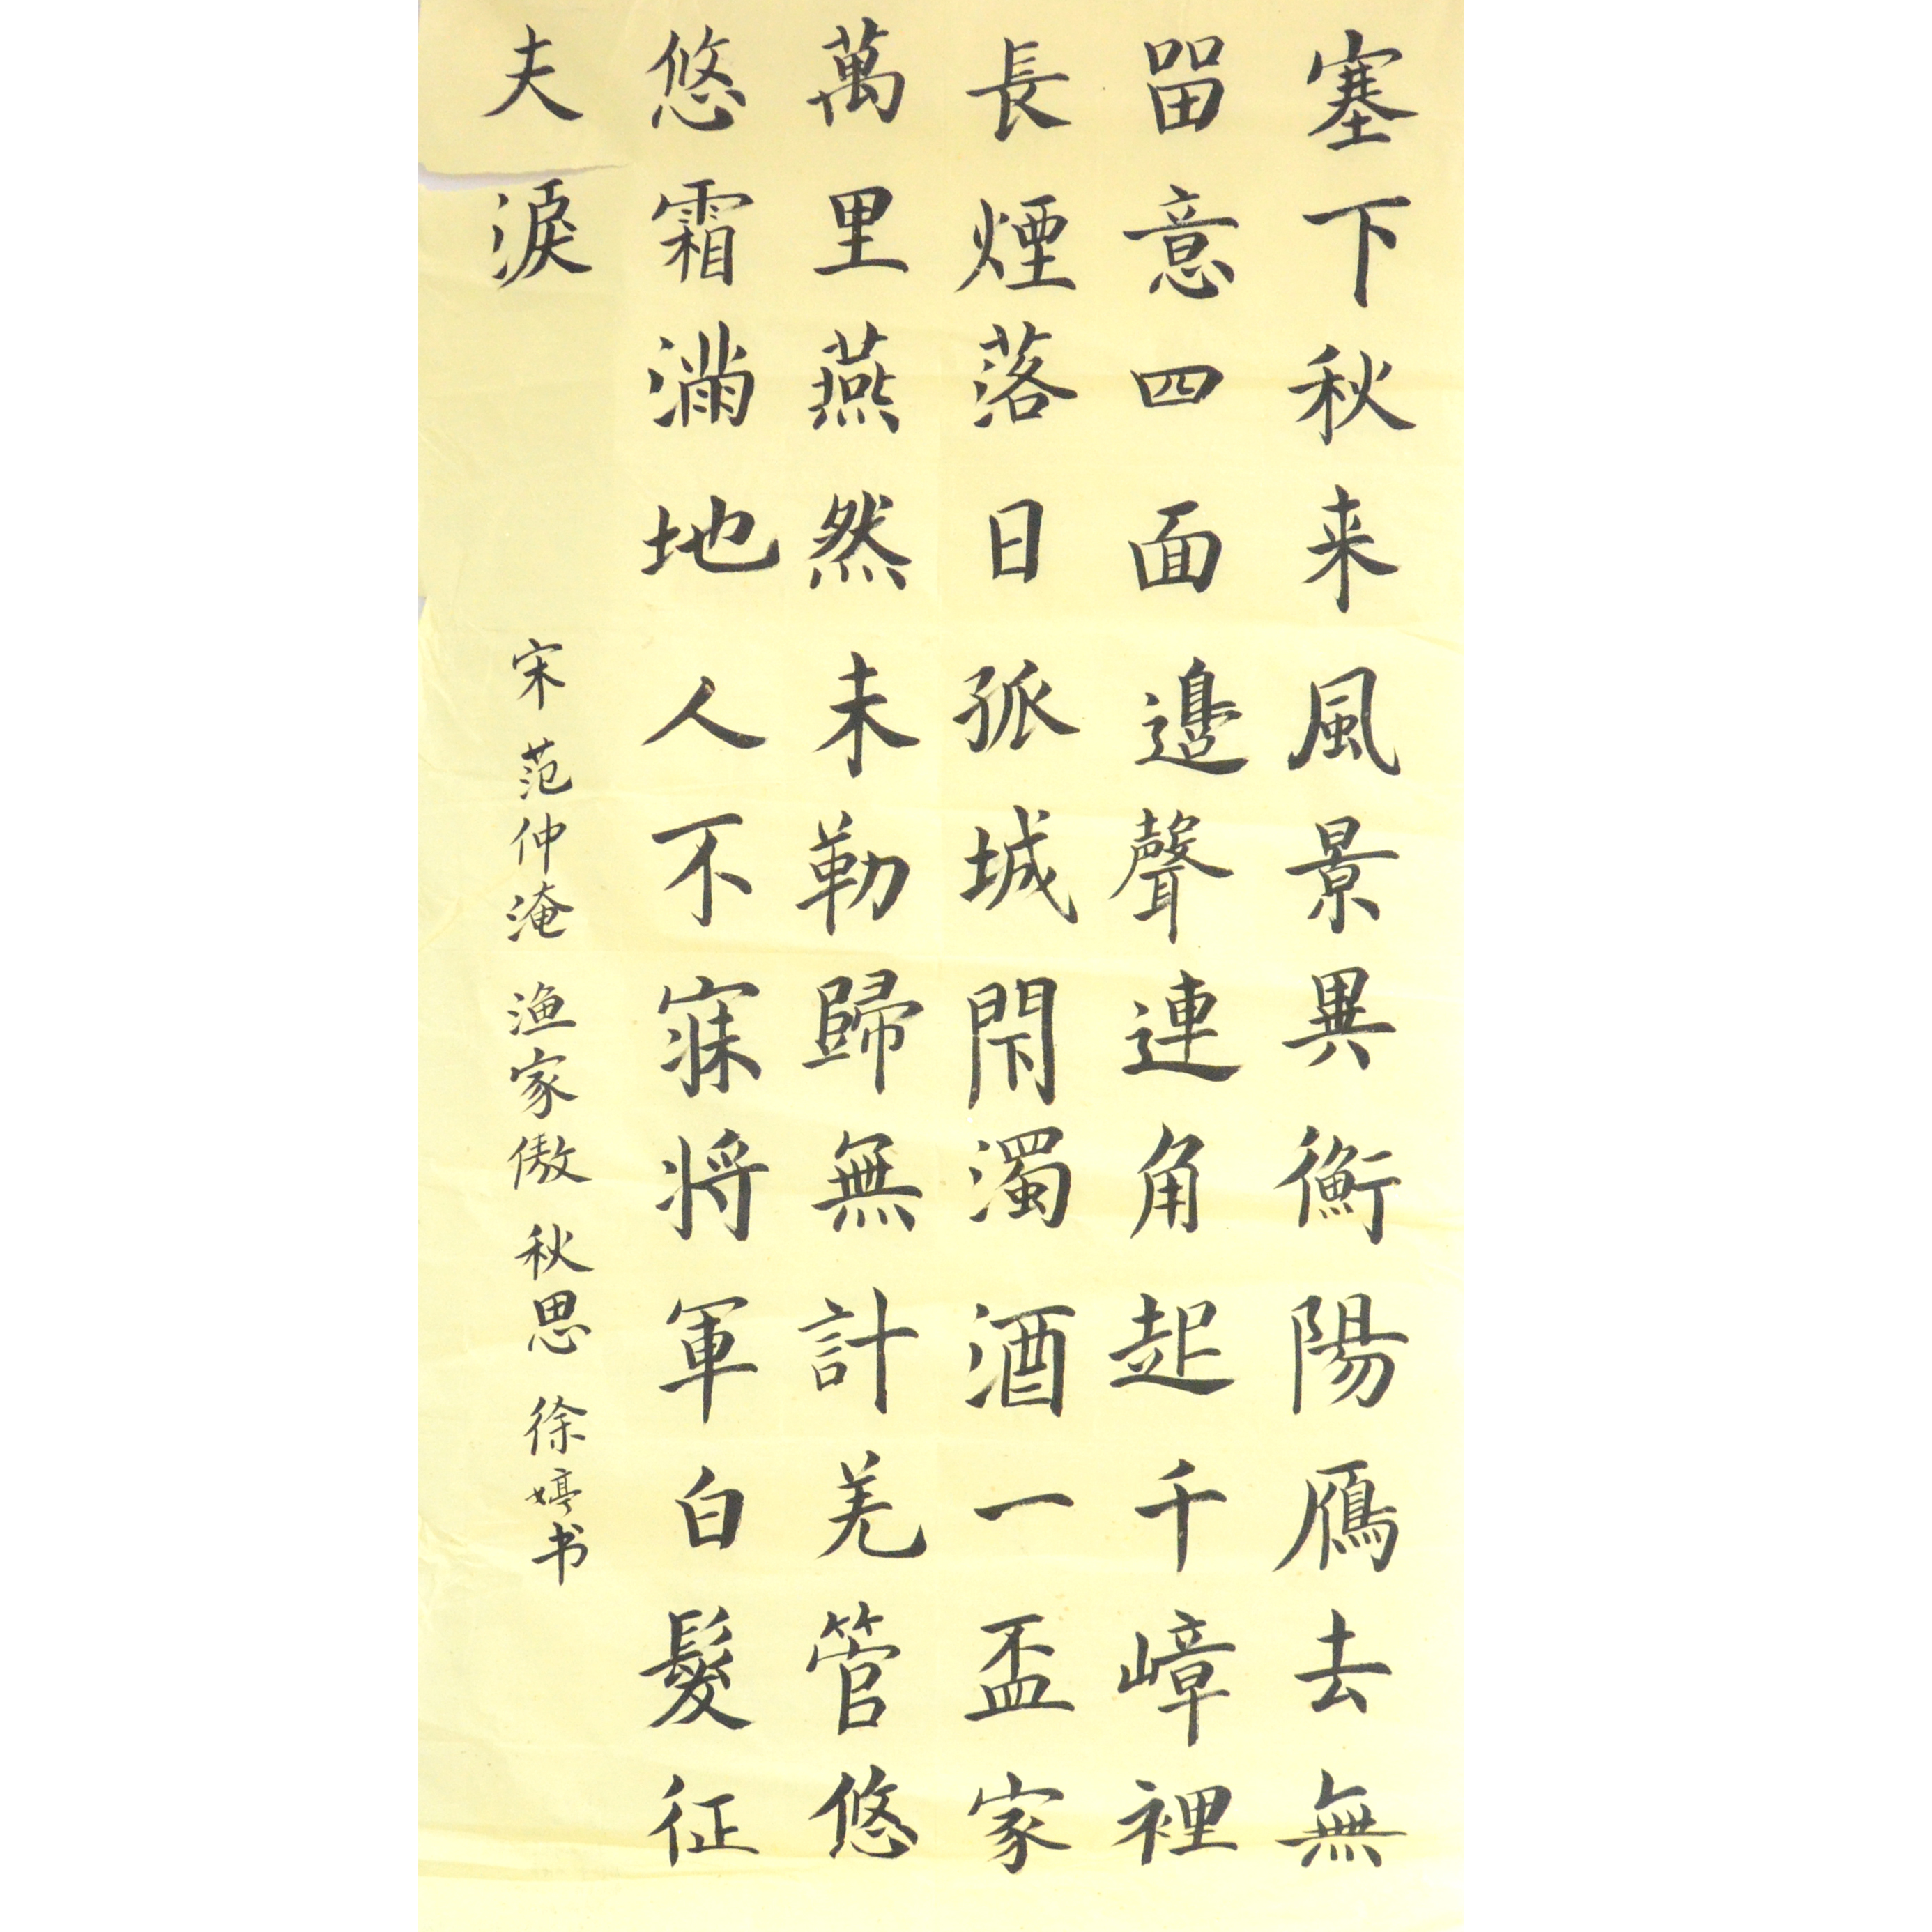 塞下秋来風景異衡陽鴈去無
畱意四面邊聲連角起千嶂裡
長煙落日孤城閇濁酒一盃家
萬里燕然未勒歸無計羌管悠
悠霜滿地人不寐将軍白髮征
夫淚
宋 范仲淹 渔家傲 秋思 徐婷书